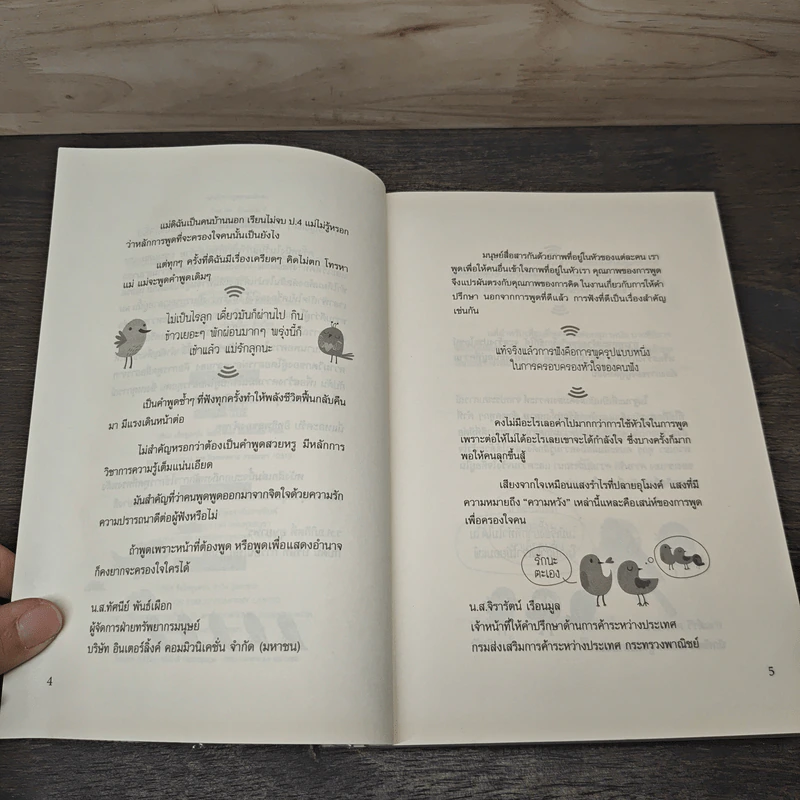 แม่ดิฉันเป็นคนบ้านนอก เรียนไม่จบ ป.4 แม่ไม่รู้หรอก
ว่าหลักการพูดที่จะครองใจคนนั้นเป็นยังไง
แต่ทุกๆ ครั้งที่ดิฉันมีเรื่องเครียดๆ คิดไม่ตก โทรหา
แม่ แม่จะพูดคำพูดเดิมๆ
ไม่เป็นไรลูก เดี๋ยวมันก็ผ่านไป กิน
ข้าวเยอะๆ พักผ่อนมากๆ พรุ่งนี้ก็
เช้าแล้ว แม่รักลูกนะ
เป็นคำพูดซ้ำๆ ที่ฟังทุกครั้งทำให้พลังชีวิตฟื้นกลับคืน
มา มีแรงเดินหน้าต่อ
ไม่สำคัญหรอกว่าต้องเป็นคำพูดสวยหรู มีหลักการ
วิชาการความรู้เต็มแน่นเอียด
มันสำคัญที่ว่าคนพูดพูดออกมาจากจิตใจด้วยความรัก
ความปรารถนาดีต่อผู้ฟังหรือไม่
ถ้าพูดเพราะหน้าที่ต้องพูด หรือพูดเพื่อแสดงอำนาจ
ก็คงยากจะครองใจใครได้
น.ส.ทัศนีย์ พันธ์เผือก
ผู้จัดการฝ่ายทรัพยากรมนุษย์
บริษัท อินเตอร์ลิ้งค์ คอมมิวนิเคชั่น จำกัด (มหาชน)
4
มนุษย์สื่อสารกันด้วยภาพที่อยู่ในหัวของแต่ละคน เรา
พูดเพื่อให้คนอื่นเข้าใจภาพที่อยู่ในหัวเรา คุณภาพของการพูด
จึงแปรผันตรงกับคุณภาพของการคิด ในงานเกี่ยวกับการให้คำ
ปรึกษา นอกจากการพูดที่ดีแล้ว การฟังที่ดีเป็นเรื่องสำคัญ
เช่นกัน
แท้จริงแล้วการฟังคือการพูดรูปแบบหนึ่ง
ในการครอบครองหัวใจของคนฟัง
คงไม่มีอะไรเลอค่าไปมากกว่าการใช้หัวใจในการพูด
เพราะต่อให้ไม่ได้อะไรเลยเขาจะได้กำลังใจ ซึ่งบางครั้งก็มาก
พอให้คนลุกขึ้นสู้
เสียงจากใจเหมือนแสงรำไรที่ปลายอุโมงค์ แสงที่มี
ความหมายถึง "ความหวัง" เหล่านี้แหละคือเสน่ห์ของการพูด
เพื่อครองใจคน
รักนะ
ตะเอง
น.ส.จิรารัตน์ เรือนมูล
เจ้าหน้าที่ให้คำปรึกษาด้านการค้าระหว่างประเทศ
กรมส่งเสริมการค้าระหว่างประเทศ กระทรวงพาณิชย์
5